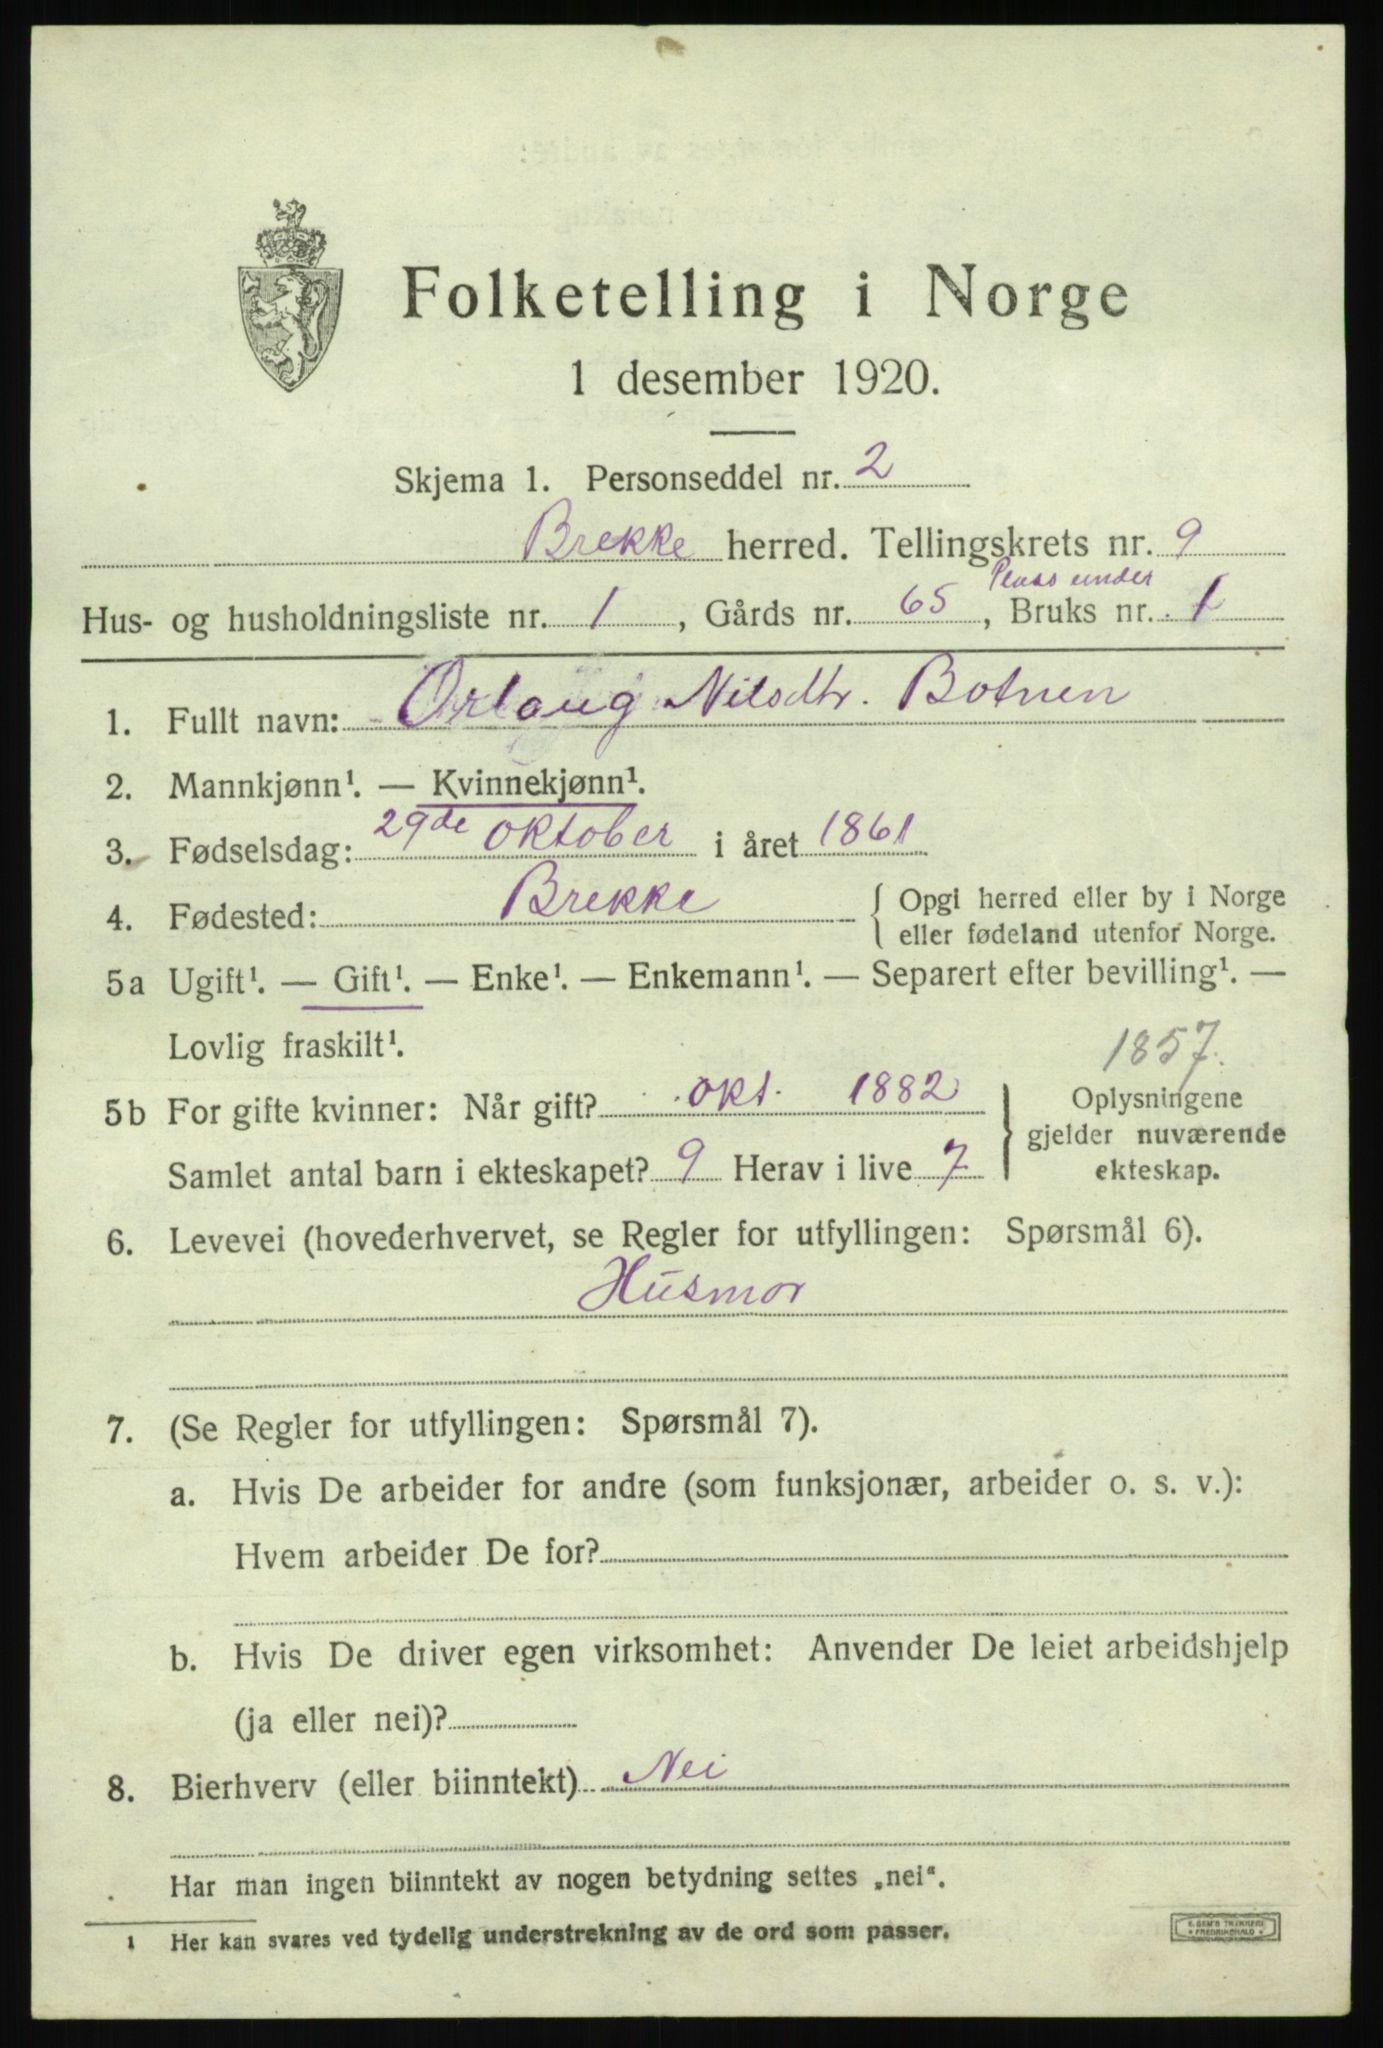 Folketelling i Norge
1 desember 1920.
Skjema 1. Personseddel nr. 2
Brekke herred. Tellingskrets nr. 9
Plass under
Hus- og husholdningsliste nr. 1, Gårds nr. 65, Bruks nr. 1
1. Fullt navn: Orlaug Nilsdtr. Botnen
2. Mannkjønn¹. — Kvinnekjønn¹.
3. Fødselsdag: 29de oktober i året 1861
4. Fødested: Brekke { Opgi herred eller by i Norge
eller fødeland utenfor Norge.
5a Ugift¹. — Gift¹. — Enke¹. — Enkemann¹. — Separert efter bevilling¹. —
Lovlig fraskilt¹.
1857.
5b For gifte kvinner: Når gift? okt. 1882 } Oplysningene
gjelder nuværende
Samlet antal barn i ekteskapet? 9 Herav i live 7 ekteskap.
6. Levevei (hovederhvervet, se Regler for utfyllingen: Spørsmål 6).
Husmor
7. (Se Regler for utfyllingen: Spørsmål 7).
a. Hvis De arbeider for andre (som funksjonær, arbeider o. s. v.):
Hvem arbeider De for?
b. Hvis De driver egen virksomhet: Anvender De leiet arbeidshjelp
(ja eller nei)?
8. Bierhverv (eller biinntekt) Nei
Har man ingen biinntekt av nogen betydning settes „nei“.
¹ Her kan svares ved tydelig understrekning av de ord som passer.